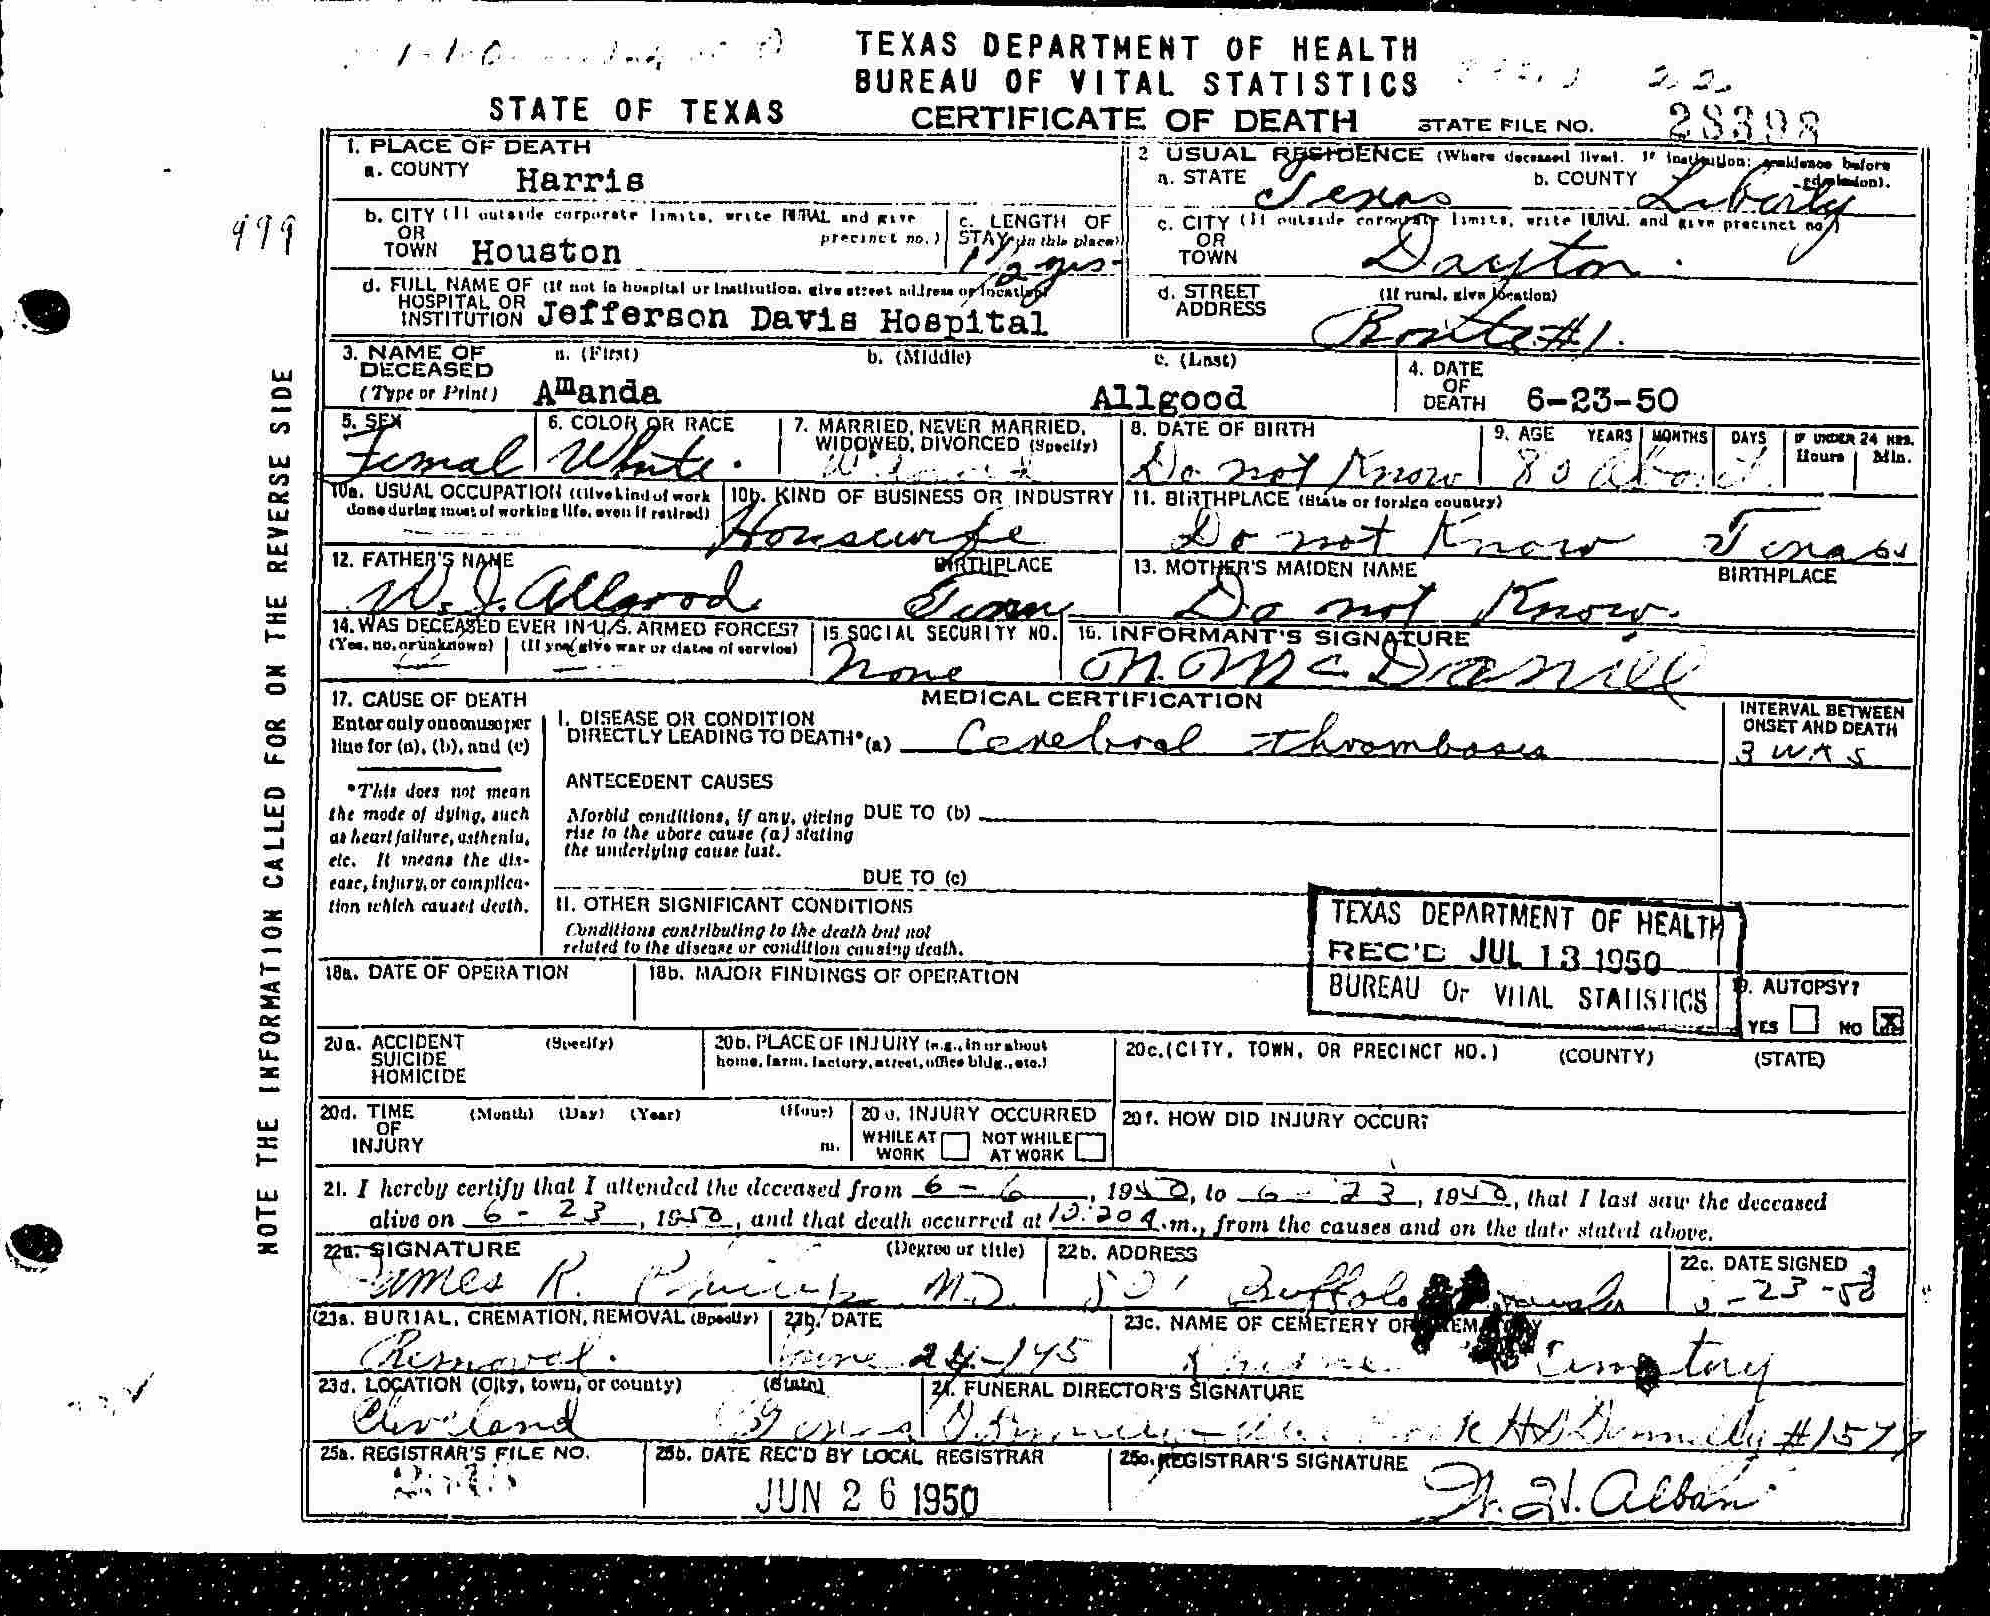 TEXAS DEPARTMENT OF HEALTH
BUREAU OF VITAL STATISTICS
STATE OF TEXAS CERTIFICATE OF DEATH STATE FILE NO. 28398
1. PLACE OF DEATH
a. COUNTY Harris
2 USUAL RESIDENCE (Where deceased lived. If institution: residence before admission).
a. STATE Texas b. COUNTY Liberty
999
b. CITY (If outside corporate limits, write RURAL and give precinct no.)
OR
TOWN Houston
c. LENGTH OF
STAY (in this place)
1 1/2 yrs.
c. CITY (If outside corporate limits, write RURAL and give precinct no.)
OR
TOWN Dayton
d. FULL NAME OF (If not in hospital or institution, give street address or location)
HOSPITAL OR
INSTITUTION Jefferson Davis Hospital
d. STREET (If rural, give location)
ADDRESS Route #1.
3. NAME OF DECEASED (Type or Print)
a. (First) b. (Middle) c. (Last)
Amanda Allgood
4. DATE OF DEATH 6-23-50
5. SEX
Femal
6. COLOR OR RACE
White.
7. MARRIED, NEVER MARRIED,
WIDOWED, DIVORCED (Specify)
8. DATE OF BIRTH
Do not Know
9. AGE YEARS MONTHS DAYS IF UNDER 24 HRS.
Hours Min.
80 about
10a. USUAL OCCUPATION (Give kind of work
done during most of working life, even if retired)
10b. KIND OF BUSINESS OR INDUSTRY
Housewife
11. BIRTHPLACE (State or foreign country)
Do not Know Texas
12. FATHER'S NAME BIRTHPLACE
W. J. Allgood Tenn
13. MOTHER'S MAIDEN NAME BIRTHPLACE
Do not Know.
14. WAS DECEASED EVER IN U.S. ARMED FORCES?
(Yes, no, or unknown) (If yes, give war or dates of service)
15. SOCIAL SECURITY NO.
None
16. INFORMANT'S SIGNATURE
N. McDaniell
17. CAUSE OF DEATH
Enter only one cause per
line for (a), (b), and (c)
*This does not mean
the mode of dying, such
as heart failure, asthenia,
etc. It means the dis-
ease, injury, or complica-
tion which caused death.
MEDICAL CERTIFICATION
I. DISEASE OR CONDITION
DIRECTLY LEADING TO DEATH* (a) Cerebral thrombosis
INTERVAL BETWEEN
ONSET AND DEATH
3 WKS
ANTECEDENT CAUSES
Morbid conditions, if any, giving DUE TO (b)
rise to the above cause (a) stating
the underlying cause last.
DUE TO (c)
II. OTHER SIGNIFICANT CONDITIONS
Conditions contributing to the death but not
related to the disease or condition causing death.
TEXAS DEPARTMENT OF HEALTH
REC'D JUL 13 1950
BUREAU OF VITAL STATISTICS
18a. DATE OF OPERATION
18b. MAJOR FINDINGS OF OPERATION
19. AUTOPSY?
YES NO X
20a. ACCIDENT (Specify)
SUICIDE
HOMICIDE
20b. PLACE OF INJURY (e.g., in or about
home, farm, factory, street, office bldg., etc.)
20c. (CITY, TOWN, OR PRECINCT NO.) (COUNTY) (STATE)
20d. TIME (Month) (Day) (Year) (Hour)
OF
INJURY m.
20e. INJURY OCCURRED
WHILE AT WORK NOT WHILE AT WORK
20f. HOW DID INJURY OCCUR?
21. I hereby certify that I attended the deceased from 6-6, 1950, to 6-23, 1950, that I last saw the deceased
alive on 6-23, 1950, and that death occurred at 10:20A.m., from the causes and on the date stated above.
22a. SIGNATURE (Degree or title)
James R. M.D.
22b. ADDRESS
Buffalo
22c. DATE SIGNED
-23-50
23a. BURIAL, CREMATION, REMOVAL (Specify)
Removal.
23b. DATE
June 24-
23c. NAME OF CEMETERY OR CREMATORY
Cemetory
23d. LOCATION (City, town, or county) (State)
Cleveland Texas
24. FUNERAL DIRECTOR'S SIGNATURE
H B Donnelly #1577
25a. REGISTRAR'S FILE NO.
25b. DATE REC'D BY LOCAL REGISTRAR
JUN 26 1950
25c. REGISTRAR'S SIGNATURE
W. H. Alban
NOTE THE INFORMATION CALLED FOR ON THE REVERSE SIDE